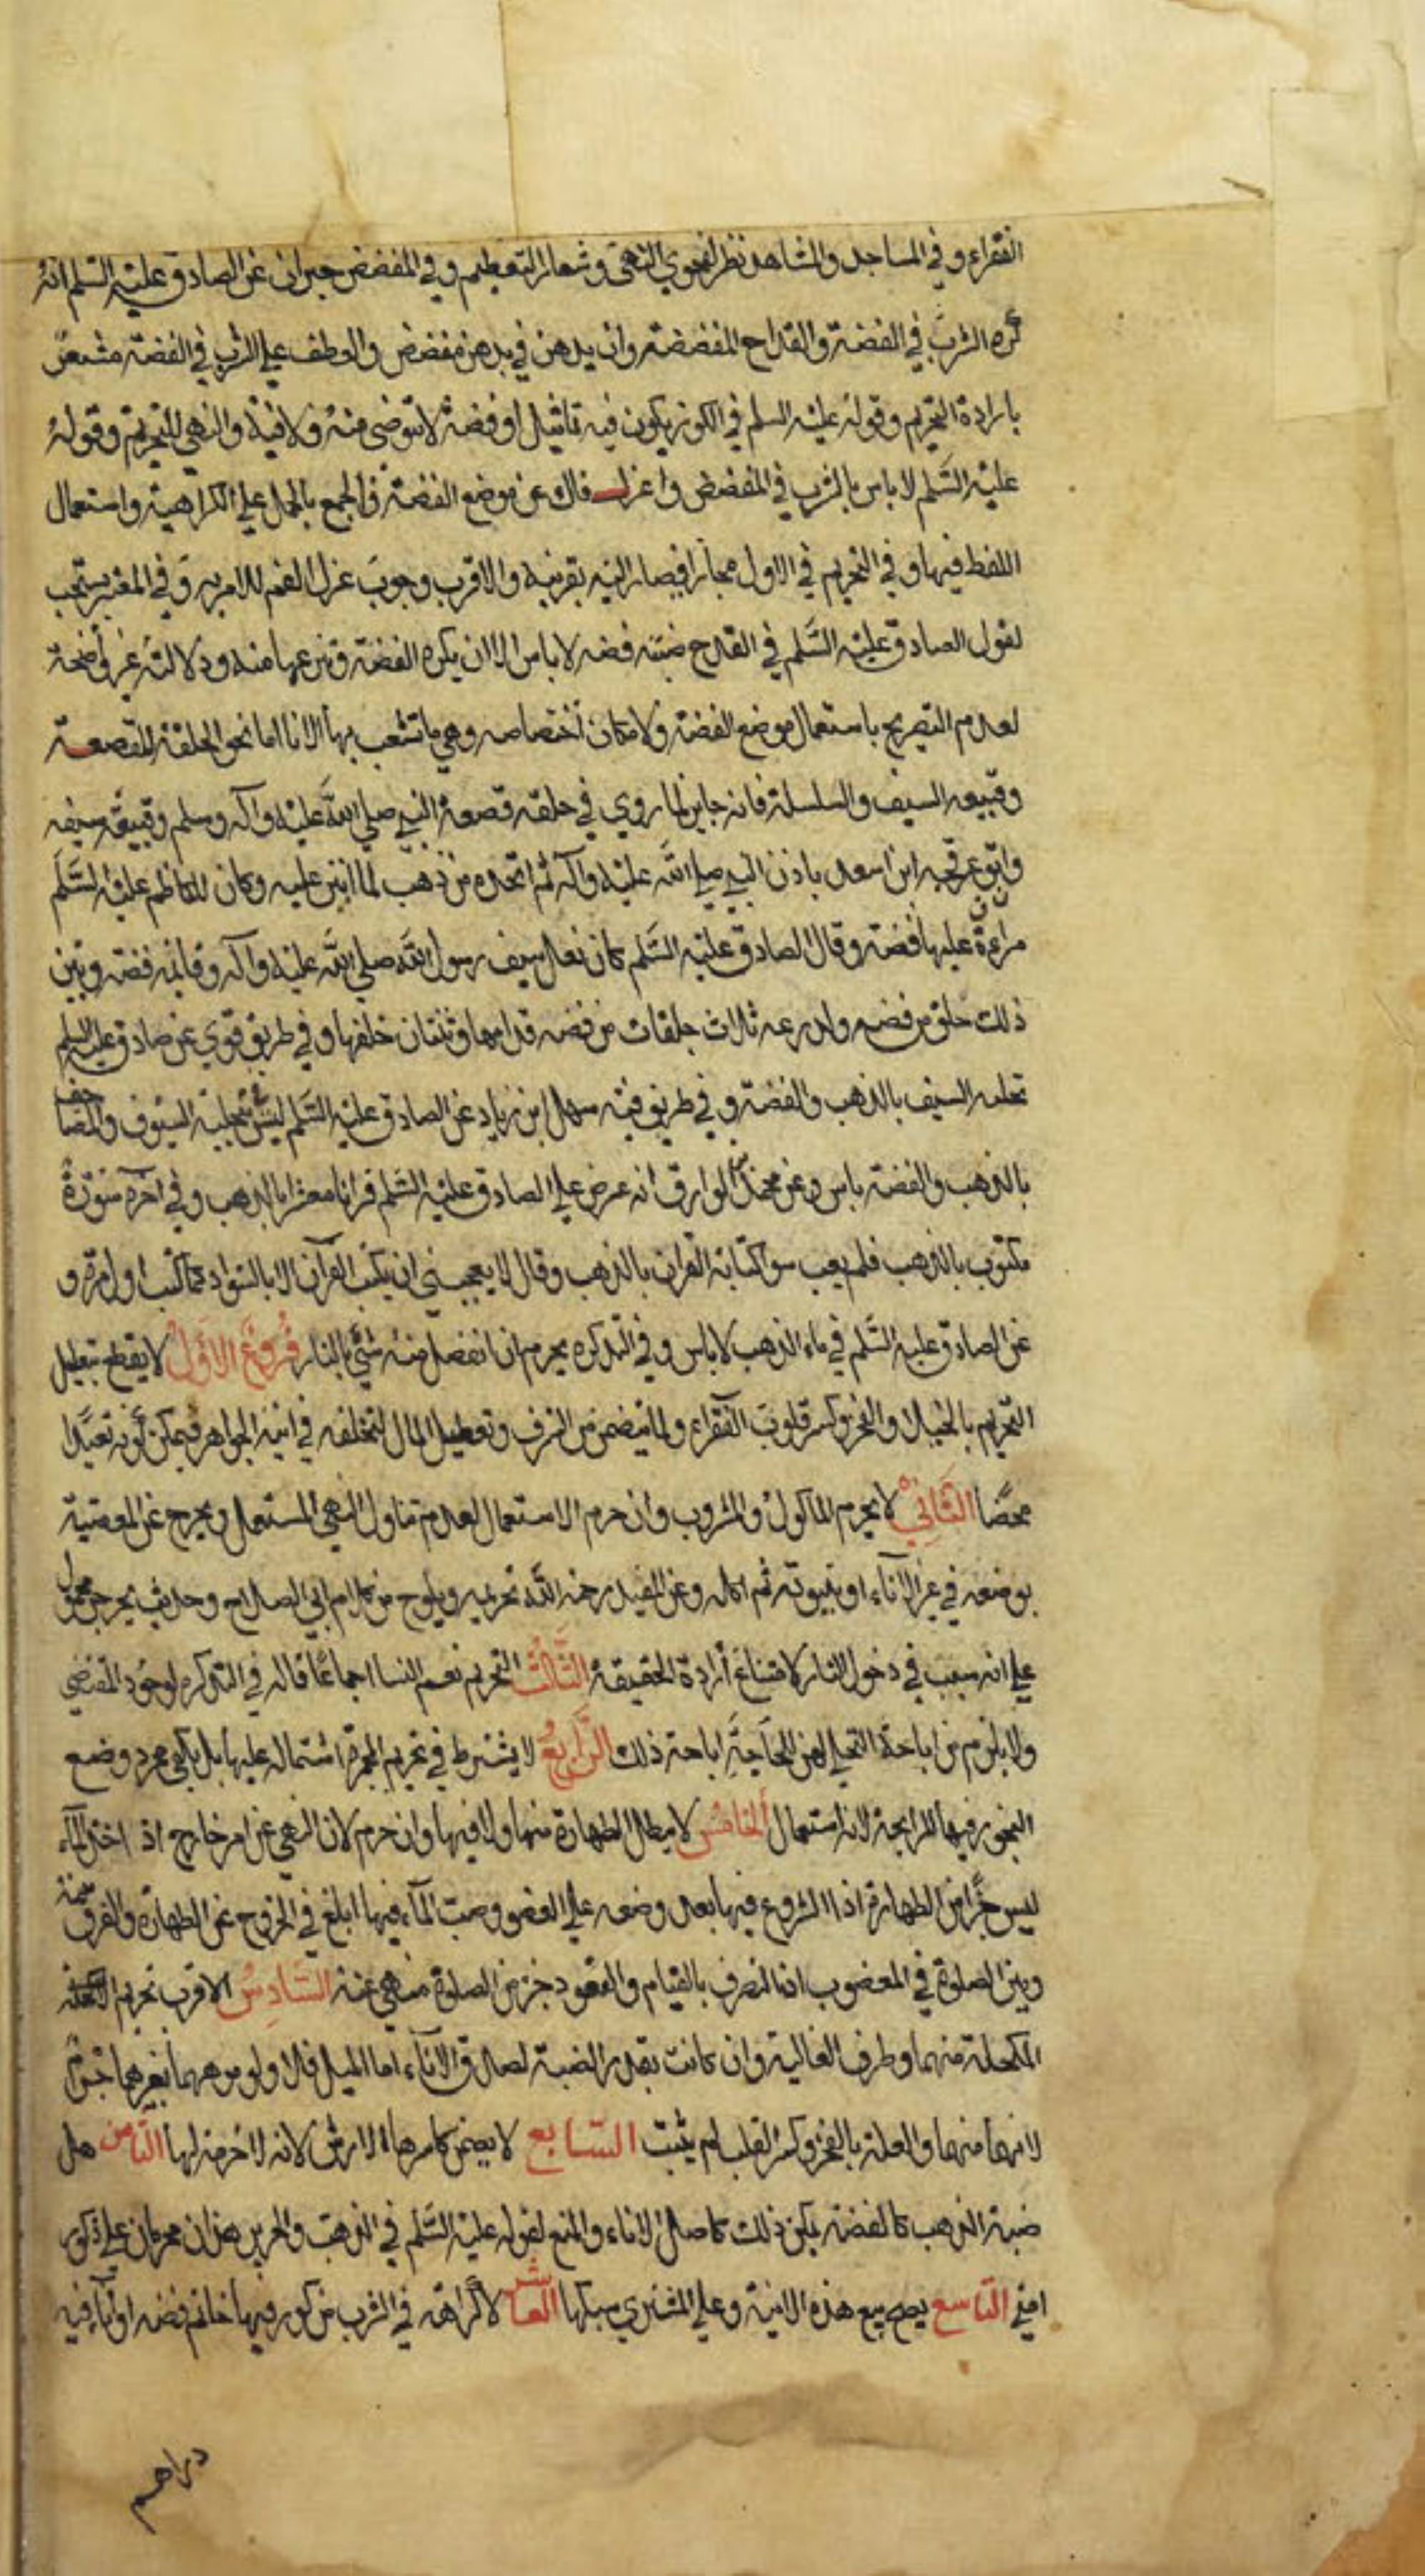 الفقراء و في المساجد والمشاهد نظر لفحوي النهى وشعار التعظيم و في المفضض خبران عن الصادق عليه السلم انه
كره الشرب في الفضة والقداح المفضضة وان يدهن في مدهن مفضض والعطف علي الشرب في الفضة مشعر
بارادة التحريم وقوله عليه السلم في الكوز يكون فيه تماثيل او فضة لا يتوضى منه ولا فيه والنهي للتحريم وقوله
عليه السلم لا باس بالشرب في المفضض واعزل فاك عن موضع الفضة فالجمع بالحمل علي الكراهية واستعمال
اللفظ فيها و في التحريم في الاول مجازا فيصار اليه بقرينة والاقرب وجوب عزل الفم للامر به و في المعتبر يستحب
لقول الصادق عليه السلم في القدح ضبته فضه لا باس الا ان يكره الفضة فينزعها منه ودلالته غير واضحة
لعدم التصريح باستعمال موضع الفضة ولامكان اختصاصه وهي ما تشعب بها الانا اما نحو الحلقة للقصعة
وقبيعه السيف والسلسلة فانه جايز لما روي في حلقه قصعة النبي صلي الله عليه واله وسلم وقبيعة سيفه
وانف عرفجه ابن اسعد باذن النبي صلي الله عليه واله ثم اتخذه من ذهب لما انتن عليه وكان للكاظم عليه السلم
مراءة عليها فضة وقال الصادق عليه السلم كان نعل سيف رسول الله صلي الله عليه واله وقايمه فضه وبين
ذلك حلق من فضه ولدرعه ثلاث حلقات من فضه قدامها وثنتان خلفها و في طريق قوي عن صادق عليه السلم
تحليه السيف بالذهب والفضة و في طريق فيه سهل ابن زياد عن الصادق عليه السلم ليس بتحلية السيوف والمصاحف
بالذهب والفضة باس وعن محمد الوراق انه عرض علي الصادق عليه السلم قرانا معشرا بالذهب و في اخره سورة
مكتوب بالذهب فلم يعب سوا كتابة القران بالذهب وقال لا يعجبني ان يكتب القرآن الا بالسواد كما كتب اول مرة و
عن الصادق عليه السلم في ماء الذهب لا باس و في التذكره يحرم ان انفصل منه شئ بالنار فروع الاول لا يقطع بتعليل
التحريم بالخيلا والفخر وكسر قلوب الفقراء ولما يتضمن من السرف وتعطيل المال لتخلفه في انية الجواهر فيمكن كونه تعبدا
محضا الثاني لا يحرم الماكول والمشروب وان حرم الاستعمال لعدم تناول النهي المستعمل ويخرج عن المعصية
بوضعه في غير الاناء او بتيوته ثم اكله وعن المفيد رحمه الله تحريمه ويلوح من كلام ابي الصلاح وحديث يجرجر محمول
علي انه سبب في دخول النار لامتناع أرادة الحقيقة الثالث التحريم نعم النسا اجماعا قاله في التذكره لوجود المقتضي
ولا يلزم من اباحة التحلي لهن للحاجة اباحة ذلك الرابع لا يشترط في تحريم المجمرة اشتماله عليها بل يكفي مجرد وضع
البخور فيها للرايحة لانه استعمال الخامس لا يبطل الطهارة منها ولا فيها وان حرم لان النهي عن امر خارج اذ اخذ الماء
ليس جزا من الطهارة اذا الشروع فيها بعد وضعه علي العضو وصبت الماء فيها ابلغ في الخروج عن الطهارة والفرق بينه
وبين الصلوة في المغصوب اذ التصرف بالقيام والقعود جزء من الصلوة منهي عنه السادس الاقرب تحريم
المكحلة منهما وظرف الغالية وان كانت بقدر الضبة لصدق الاناء اما الميل فلا ولو موههما بغيرهما حرم
لانها منهما والعلة بالفخر وكسر القلب لم يثبت السابع لا يضمن كاسرها الارش لانه لا حرمة لها الثامن هل
ضبة الذهب كالفضة يمكن ذلك كاصل الاناء والمنع لقوله عليه السلم في الذهب والحرير هذان محرمان علي ذكور
امتي التاسع يصح بيع هذه الانية وعلي المشتري سبكها العاشر لا كراهة في الشرب من كوز فيها خاتم فضه او اناء فيه
دراهم